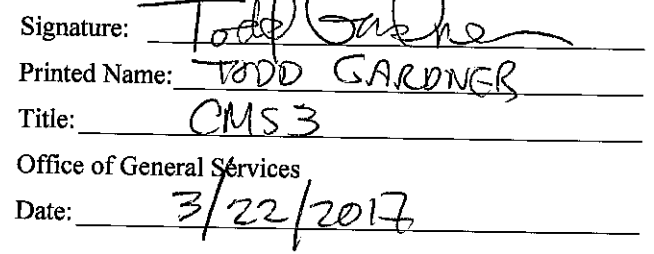 Signature: Todd Gardner
Printed Name: TODD GARDNER
Title: CMS3
Office of General Services
Date: 3/22/2017